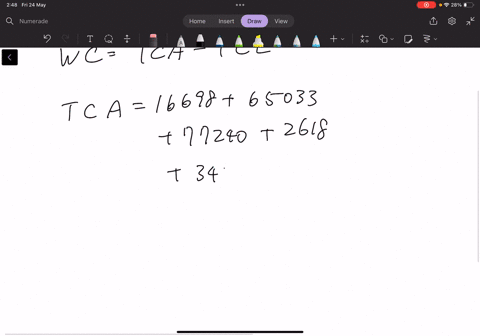 2:48 Fri 24 May
28%
Numerade
Home Insert Draw View
WC = TCA - TCL
TCA = 16698 + 65033
+ 77240 + 2618
+ 34